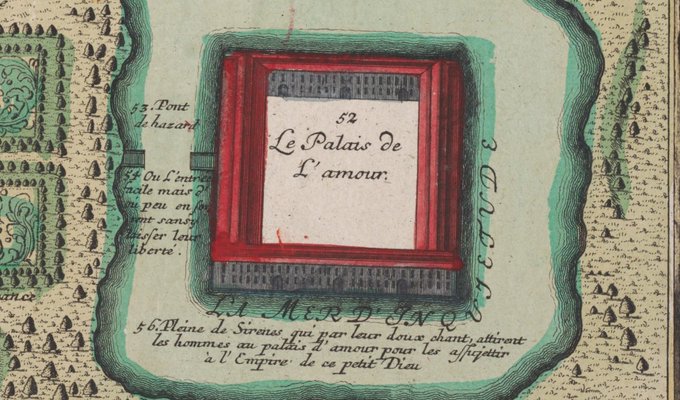 53. Pont
de hazard
52
Le Palais de
L'amour.
54 Ou L'entrée
facile mais
ou peu en
sans
laisser leur
liberté.
LA MER D'INQUIETUDE
56. Pleine de Sirenes qui par leur doux chant, attirent
les hommes au palais d'amour pour les assujettir
à l'Empire de ce petit Dieu
ance